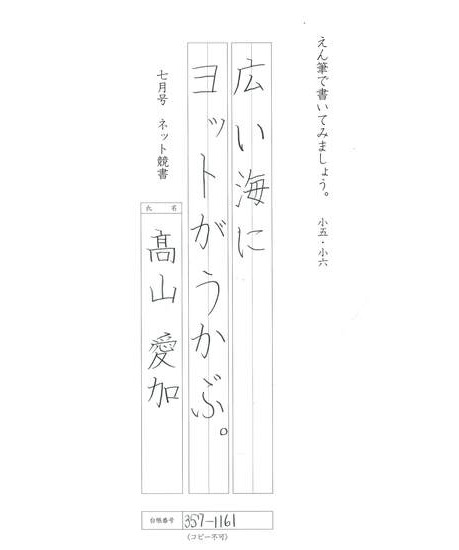 えん筆で書いてみましょう。 小五・小六
広い海に
ヨットがうかぶ。
七月号 ネット競書
氏名
髙山 愛加
台帳番号 357-1161
(コピー不可)